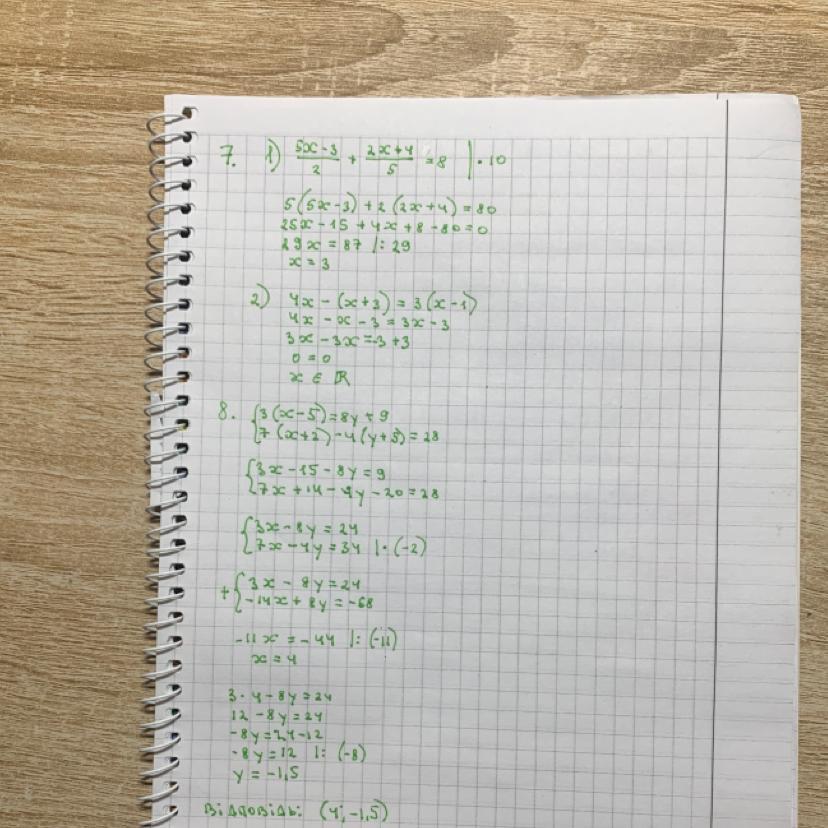 7. 1) (5x-3)/2 + (2x+4)/5 = 8 | · 10
5(5x-3)+2(2x+4)=80
25x-15+4x+8-80=0
29x=87 |: 29
x=3
2) 4x-(x+3)=3(x-1)
4x-x-3=3x-3
3x-3x=-3+3
0=0
x ∈ ℝ
8. {3(x-5)=8y+9
{7(x+2)-4(y+5)=28
{3x-15-8y=9
{7x+14-4y-20=28
{3x-8y=24
{7x-4y=34 |· (-2)
+ {3x-8y=24
{-14x+8y=-68
-11x=-44 |: (-11)
x=4
3·4-8y=24
12-8y=24
-8y=24-12
-8y=12 |: (-8)
y=-1,5
Відповідь: (4; -1,5)